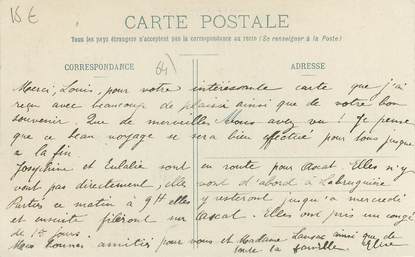 15 €
CARTE POSTALE
Tous les pays étrangers n'acceptent pas la correspondance au recto (Se renseigner à la Poste)
CORRESPONDANCE
ADRESSE
Merci, Louis, pour votre intéressante carte que j'ai
reçu avec beaucoup de plaisir ainsi que de votre bon
souvenir. Que de merveilles Vous avez vu ! Je pense
que ce beau voyage se sera bien effectué pour tous jusque
a la fin
Joséphine et Eulalie sont en route pour Axat. Elles n'y
vont pas directement, elles vont d'abord à Labruguière
Parties ce matin à 9H elles y resteront jusqu'à mercredi
et ensuite fileront sur Axat. Elles ont pris un congé
de 15 jours
amitiés pour vous et Madame ainsi que de
toute la famille